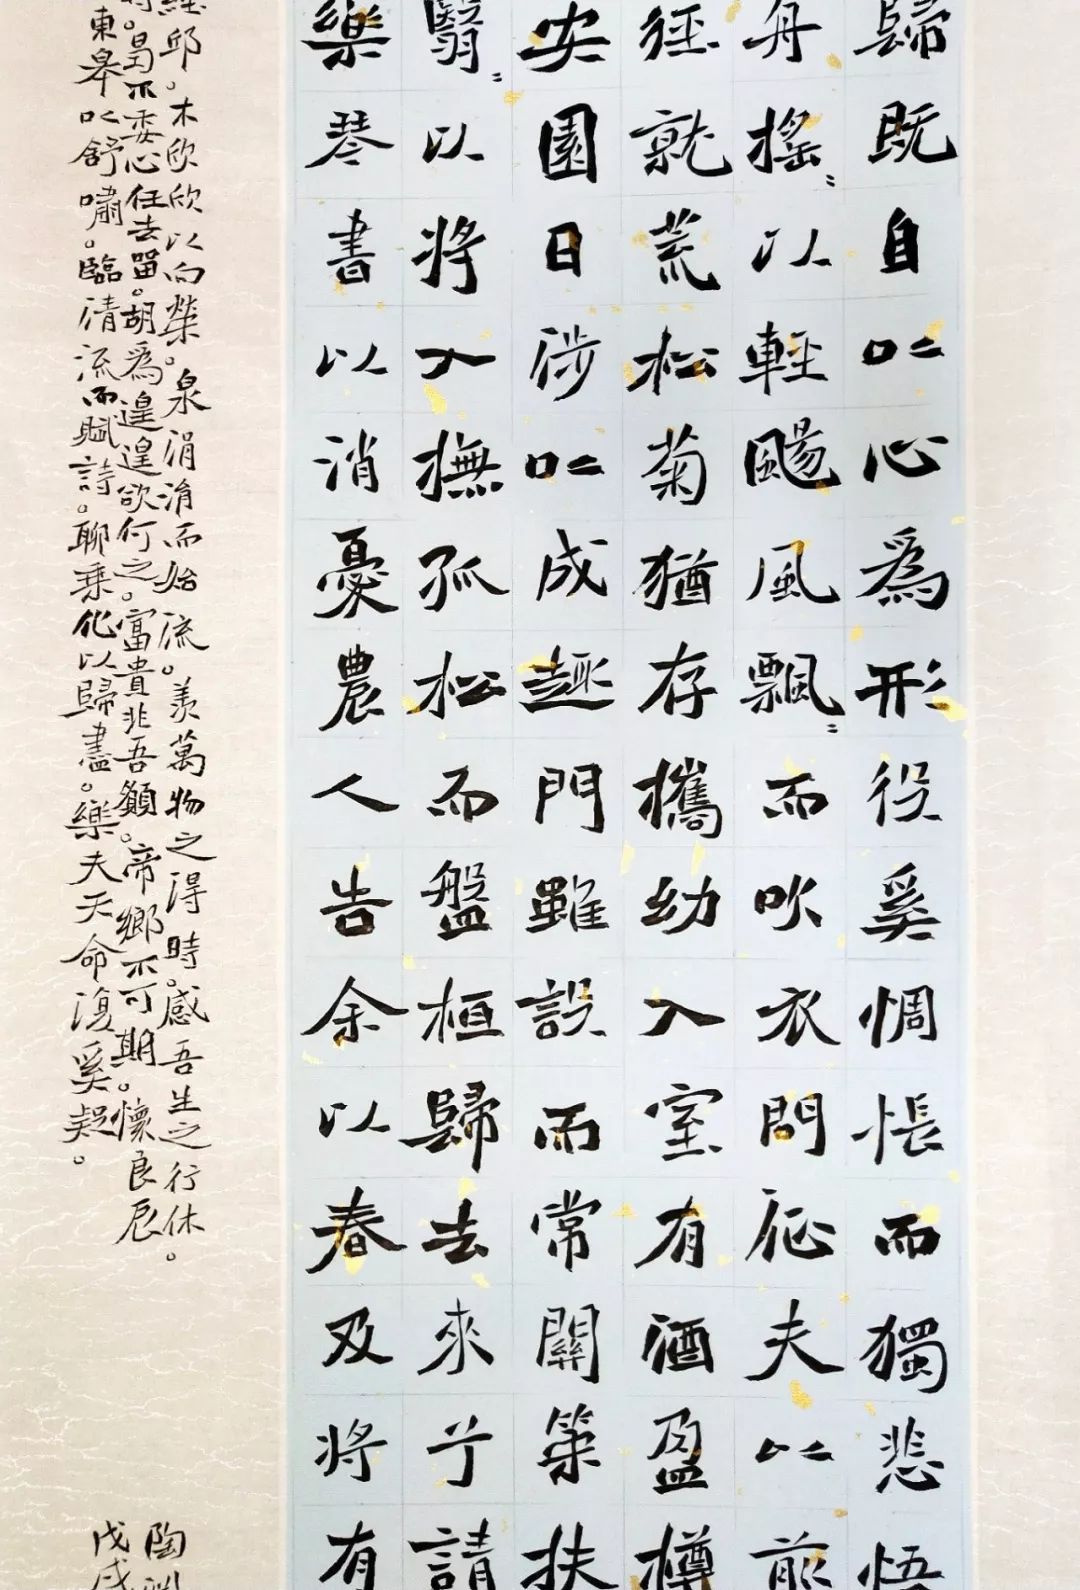 歸既自以心爲形役奚惆悵而獨悲悟
舟搖〻以輕颺風飄〻而吹衣問征夫以前
徑就荒松菊猶存攜幼入室有酒盈樽
安園日涉以成趣門雖設而常關策扶
翳〻以將入撫孤松而盤桓歸去來兮請
樂琴書以消憂農人告余以春及將有
經邱。木欣欣以向榮。泉涓涓而始流。羨萬物之得時。感吾生之行休。
時。曷不委心任去留。胡爲遑遑欲何之。富貴非吾願。帝鄉不可期。懷良辰
東皋以舒嘯。臨清流而賦詩。聊乘化以歸盡。樂夫天命復奚疑。
陶淵
戊戌